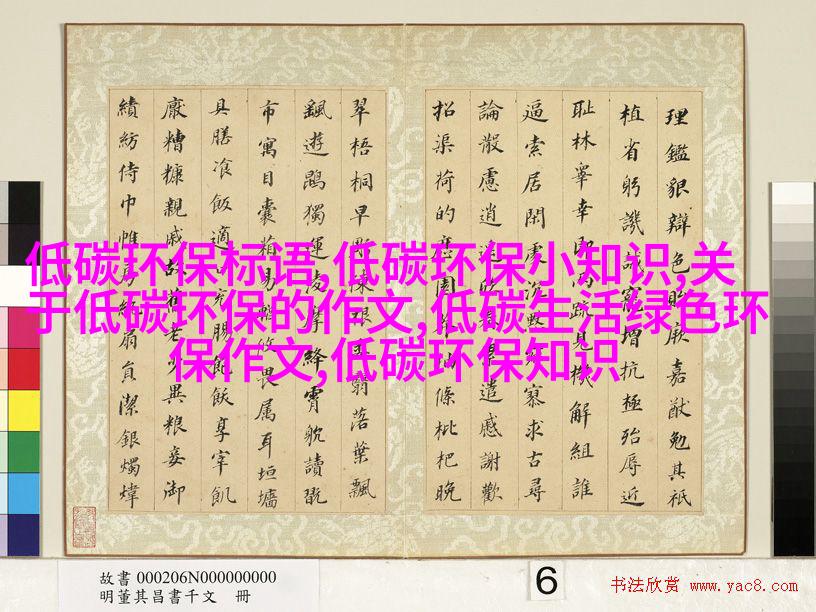 低碳环保标语,低碳环保小知识,关
于低碳环保的作文,低碳生活绿色环
保作文,低碳环保知识
理鑑貌辯色貽厥嘉猷勉其祗
植省躬譏誡寵增抗極殆辱近
恥林睾幸即兩疏見機解組誰
逼索居閑處沉默寥求古尋
論散慮逍遙欣累遣慼謝歡
招渠荷的歷園抽條枇杷晚
翠梧桐早凋陳根委翳落葉飄
颻遊鵾獨運凌摩絳霄躭讀翫
市寓目囊箱易輶攸畏属耳垣墻
具膳飡飯適口充腸飽飫享宰飢
厭糟糠親戚故舊老少異粮妾御
績紡侍巾帷房紈扇員潔銀燭煒
故書 000206N000000000
明董其昌書千文 冊
6
书法欣赏 www.yac8.com